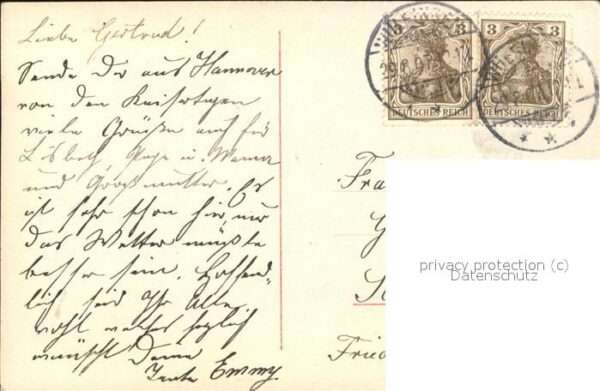 Liebe Gertrud!
Sende Dir aus Hannover
von den Kaisertagen
viele Grüße auch für
Lisbeth, Papa u. Mama
und Großmutter. Es
ist sehr schön hier, nur
das Wetter müßte
besser sein. Hoffent-
lich seid Ihr Alle
wohl welches
wünscht Deine
Tante Emmy
3 3
DEUTSCHES REICH
3 3
DEUTSCHES REICH
Fra
Fried
privacy protection (c)
Datenschutz